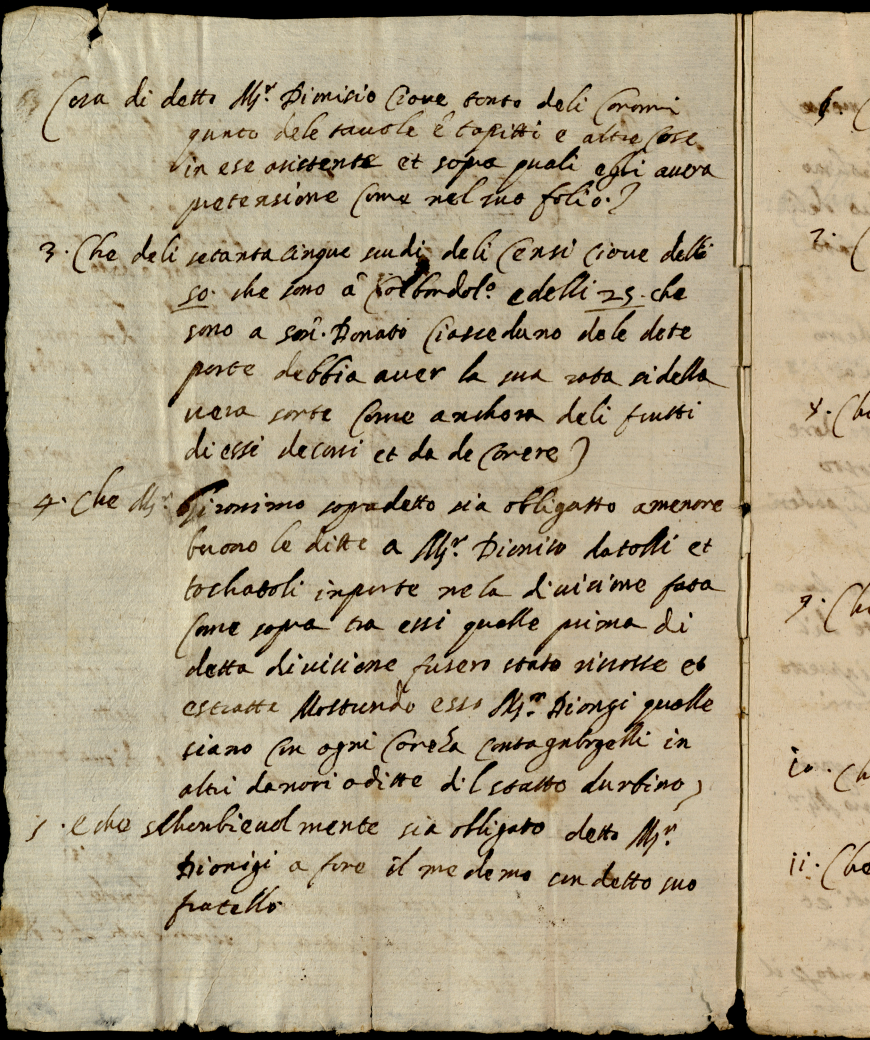 Casa di detto Mr. Dionisio Cioue tanto deli Coromi
quanto dele tauole è tapitti e altre Cose
in ese asistente et sopra quali egli auera
pretensione Come nel suo folio.)
3. Che deli setanta cinque scudi deli Censi Cioue delli
50. che sono à Colbordolo. e delli 25. che
sono a San. Donato Ciasceduno dele dete
parte debbia auer la sua rata si della
uera sorte Come anchora deli frutti
di essi decorsi et da de Corere)
4. Che Mr. Gironimo sopradetto sia obligatto a menare
buono le ditte a Mr. Dionisio datolli et
tochatoli in parte ne la diuisione fata
Come sopra tra essi quelle prima di
detta diuisione fusero stato riscosse et
estratta Mostrando esso Mr. Dionigi quelle
siano in ogni
altri danari o ditte dil statto durbino)
5. e che schanbieuolmente sia obligato detto Mr.
Dionigi a fare il medemo con detto suo
fratello
6.
7.
8. Ch
9. Ch
10. Ch
11. Che